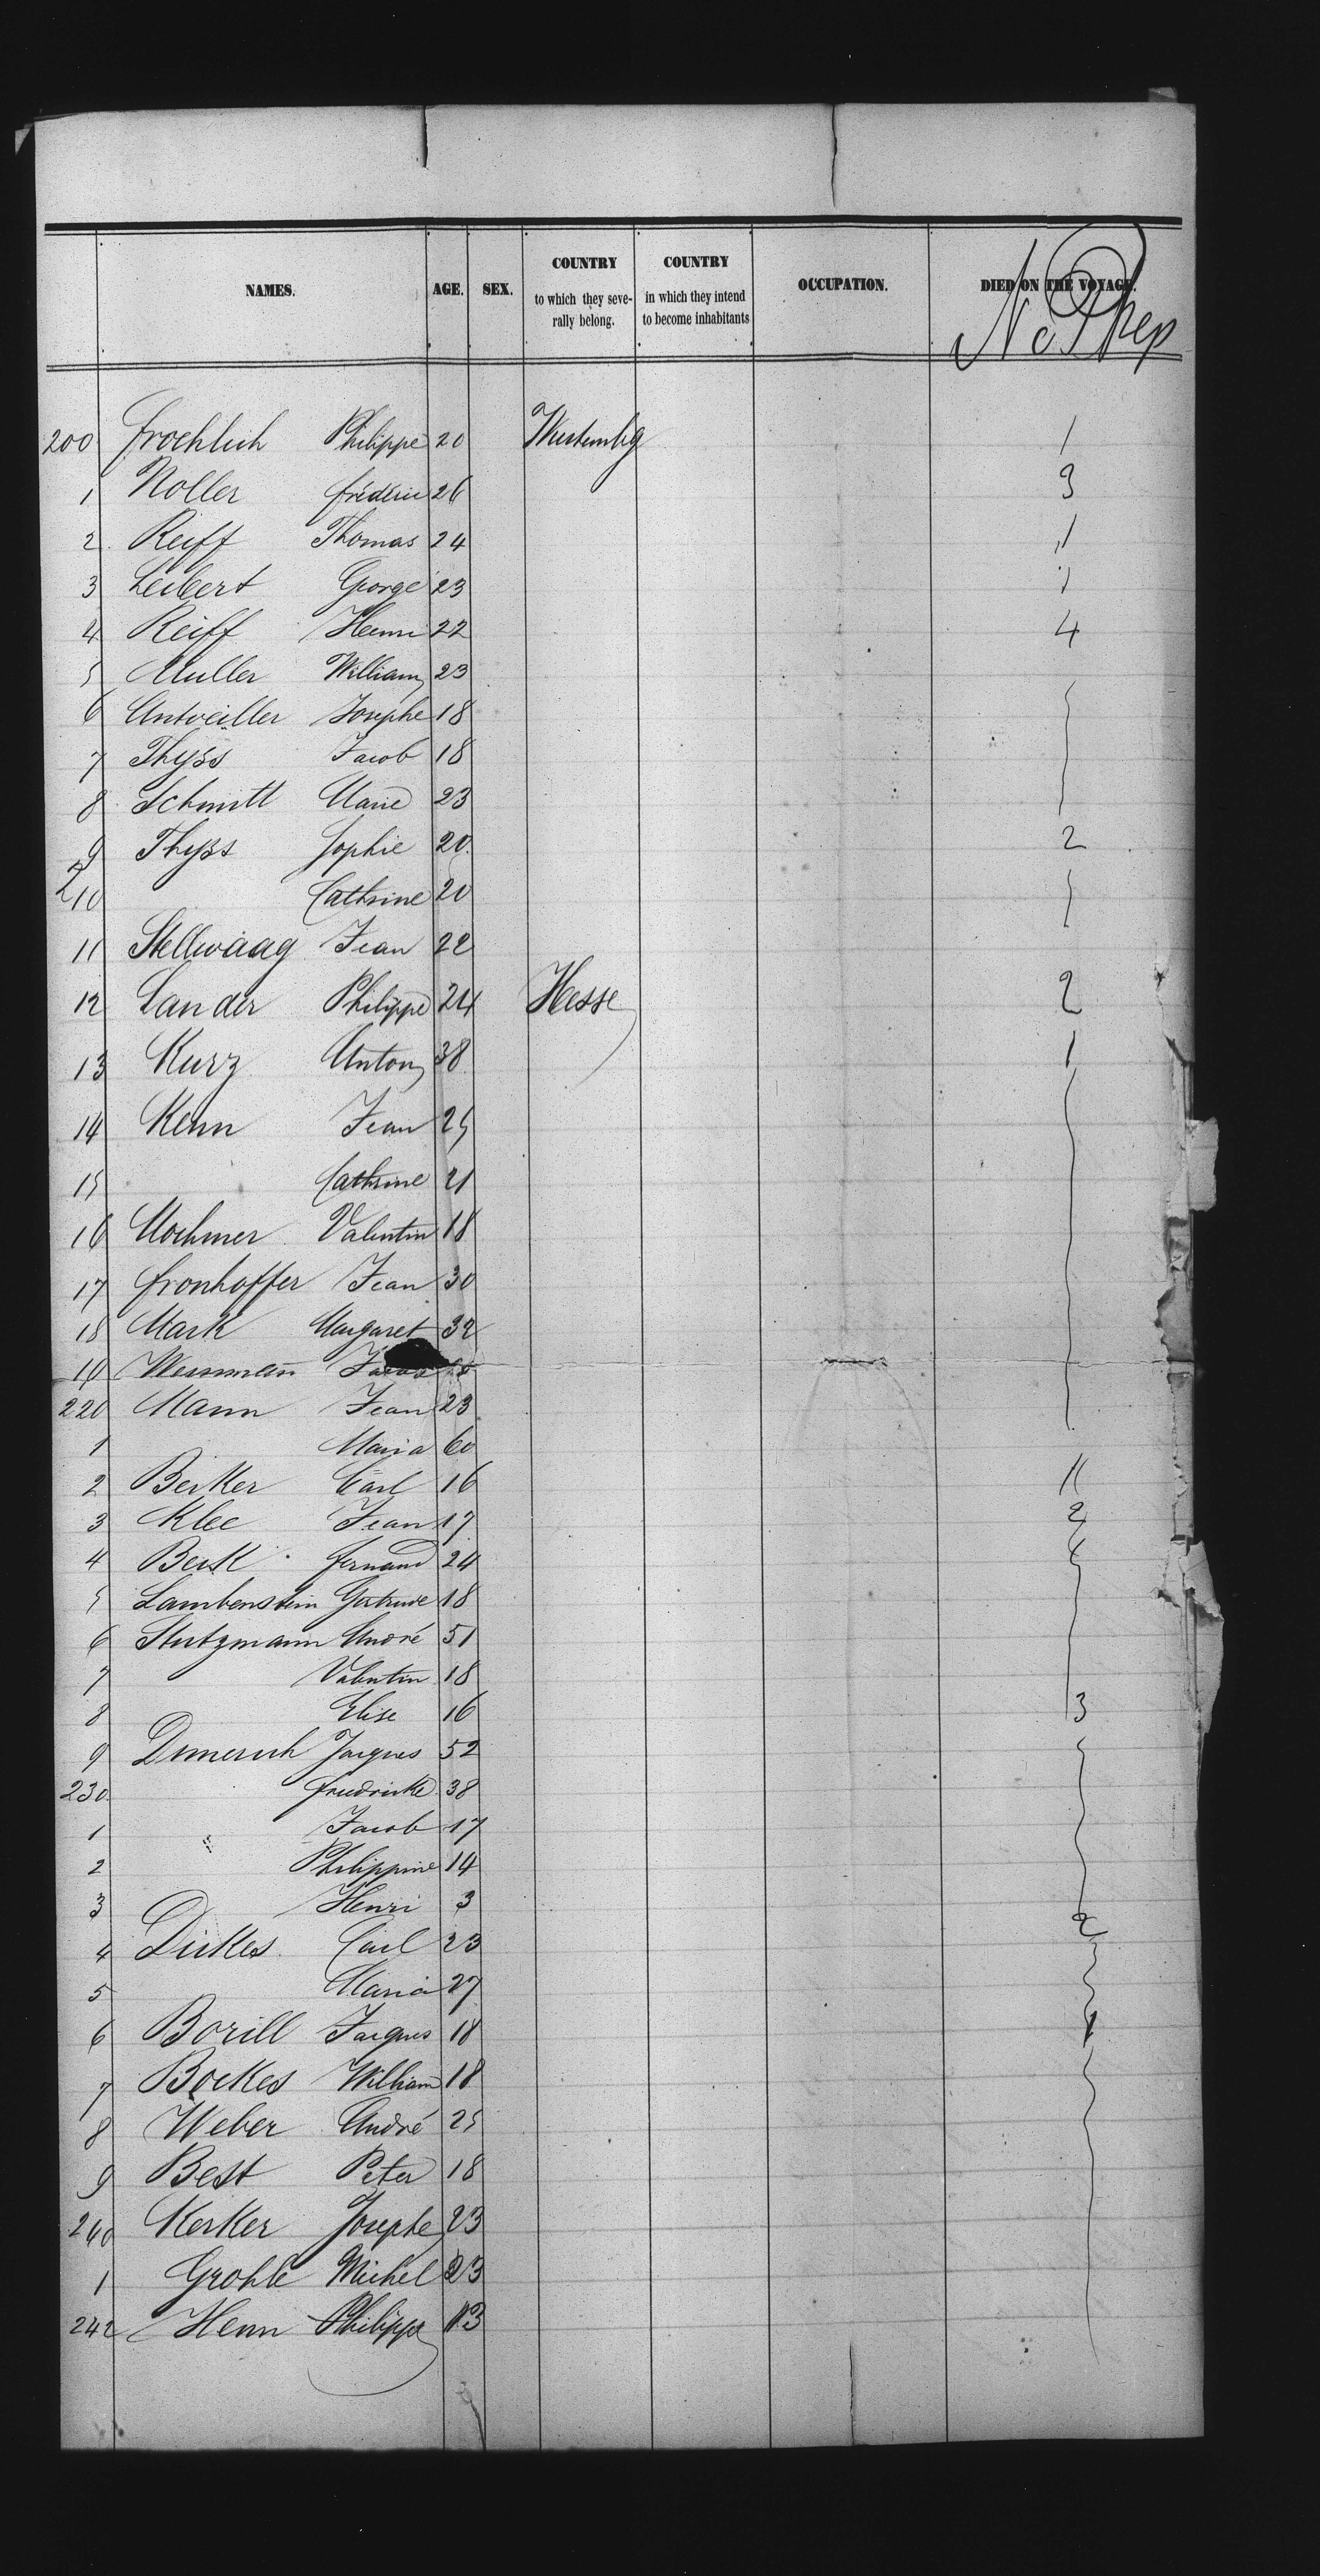 NAMES. AGE. SEX. COUNTRY to which they seve- rally belong. COUNTRY in which they intend to become inhabitants OCCUPATION. DIED ON THE VOYAGE.
200 Froehlich Philippe 20 1
1 Noller Fréderic 26 3
2 Reiff Thomas 24 1
3 Leibert George 23 1
4 Reiff Henri 22 4
5 Muller William 23
6 Antveiller Josephe 18
7 Thyss Jacob 18
8 Schmitt Marie 23
9 Thyss Sophie 20 2
210 Cathrine 20
11 Stellwaag Jean 22
12 Sander Philippe 24 Hesse 2
13 Kurz Anton 38 1
14 Kenn Jean 25
15 Cathrine 21
16 Mochmer Valentin 18
17 Fronhoffer Jean 30
18 Mark Margaret 32
19 Jacob
220 Mann Jean 23
1 Maria 60
2 Berker Carl 16 11
3 Klee Jean 17 2
4 Berk Fernand 24
5 Lambenstein Gertrude 18
6 Stutzmann André 51
7 Valentin 18
8 Elise 16 3
9 Dimerich Jacques 52
230 Friedricke 38
1 Jacob 17
2 Philippine 14
3 Henri 3
4 Dickes Carl 23 2
5 Maria 27
6 Borill Jacques 18 1
7 Bockes William 18
8 Weber André 25
9 Best Peter 18
240 Kerker Josephe 23
1 Grohle Michel 23
242 Henn Philippe 13